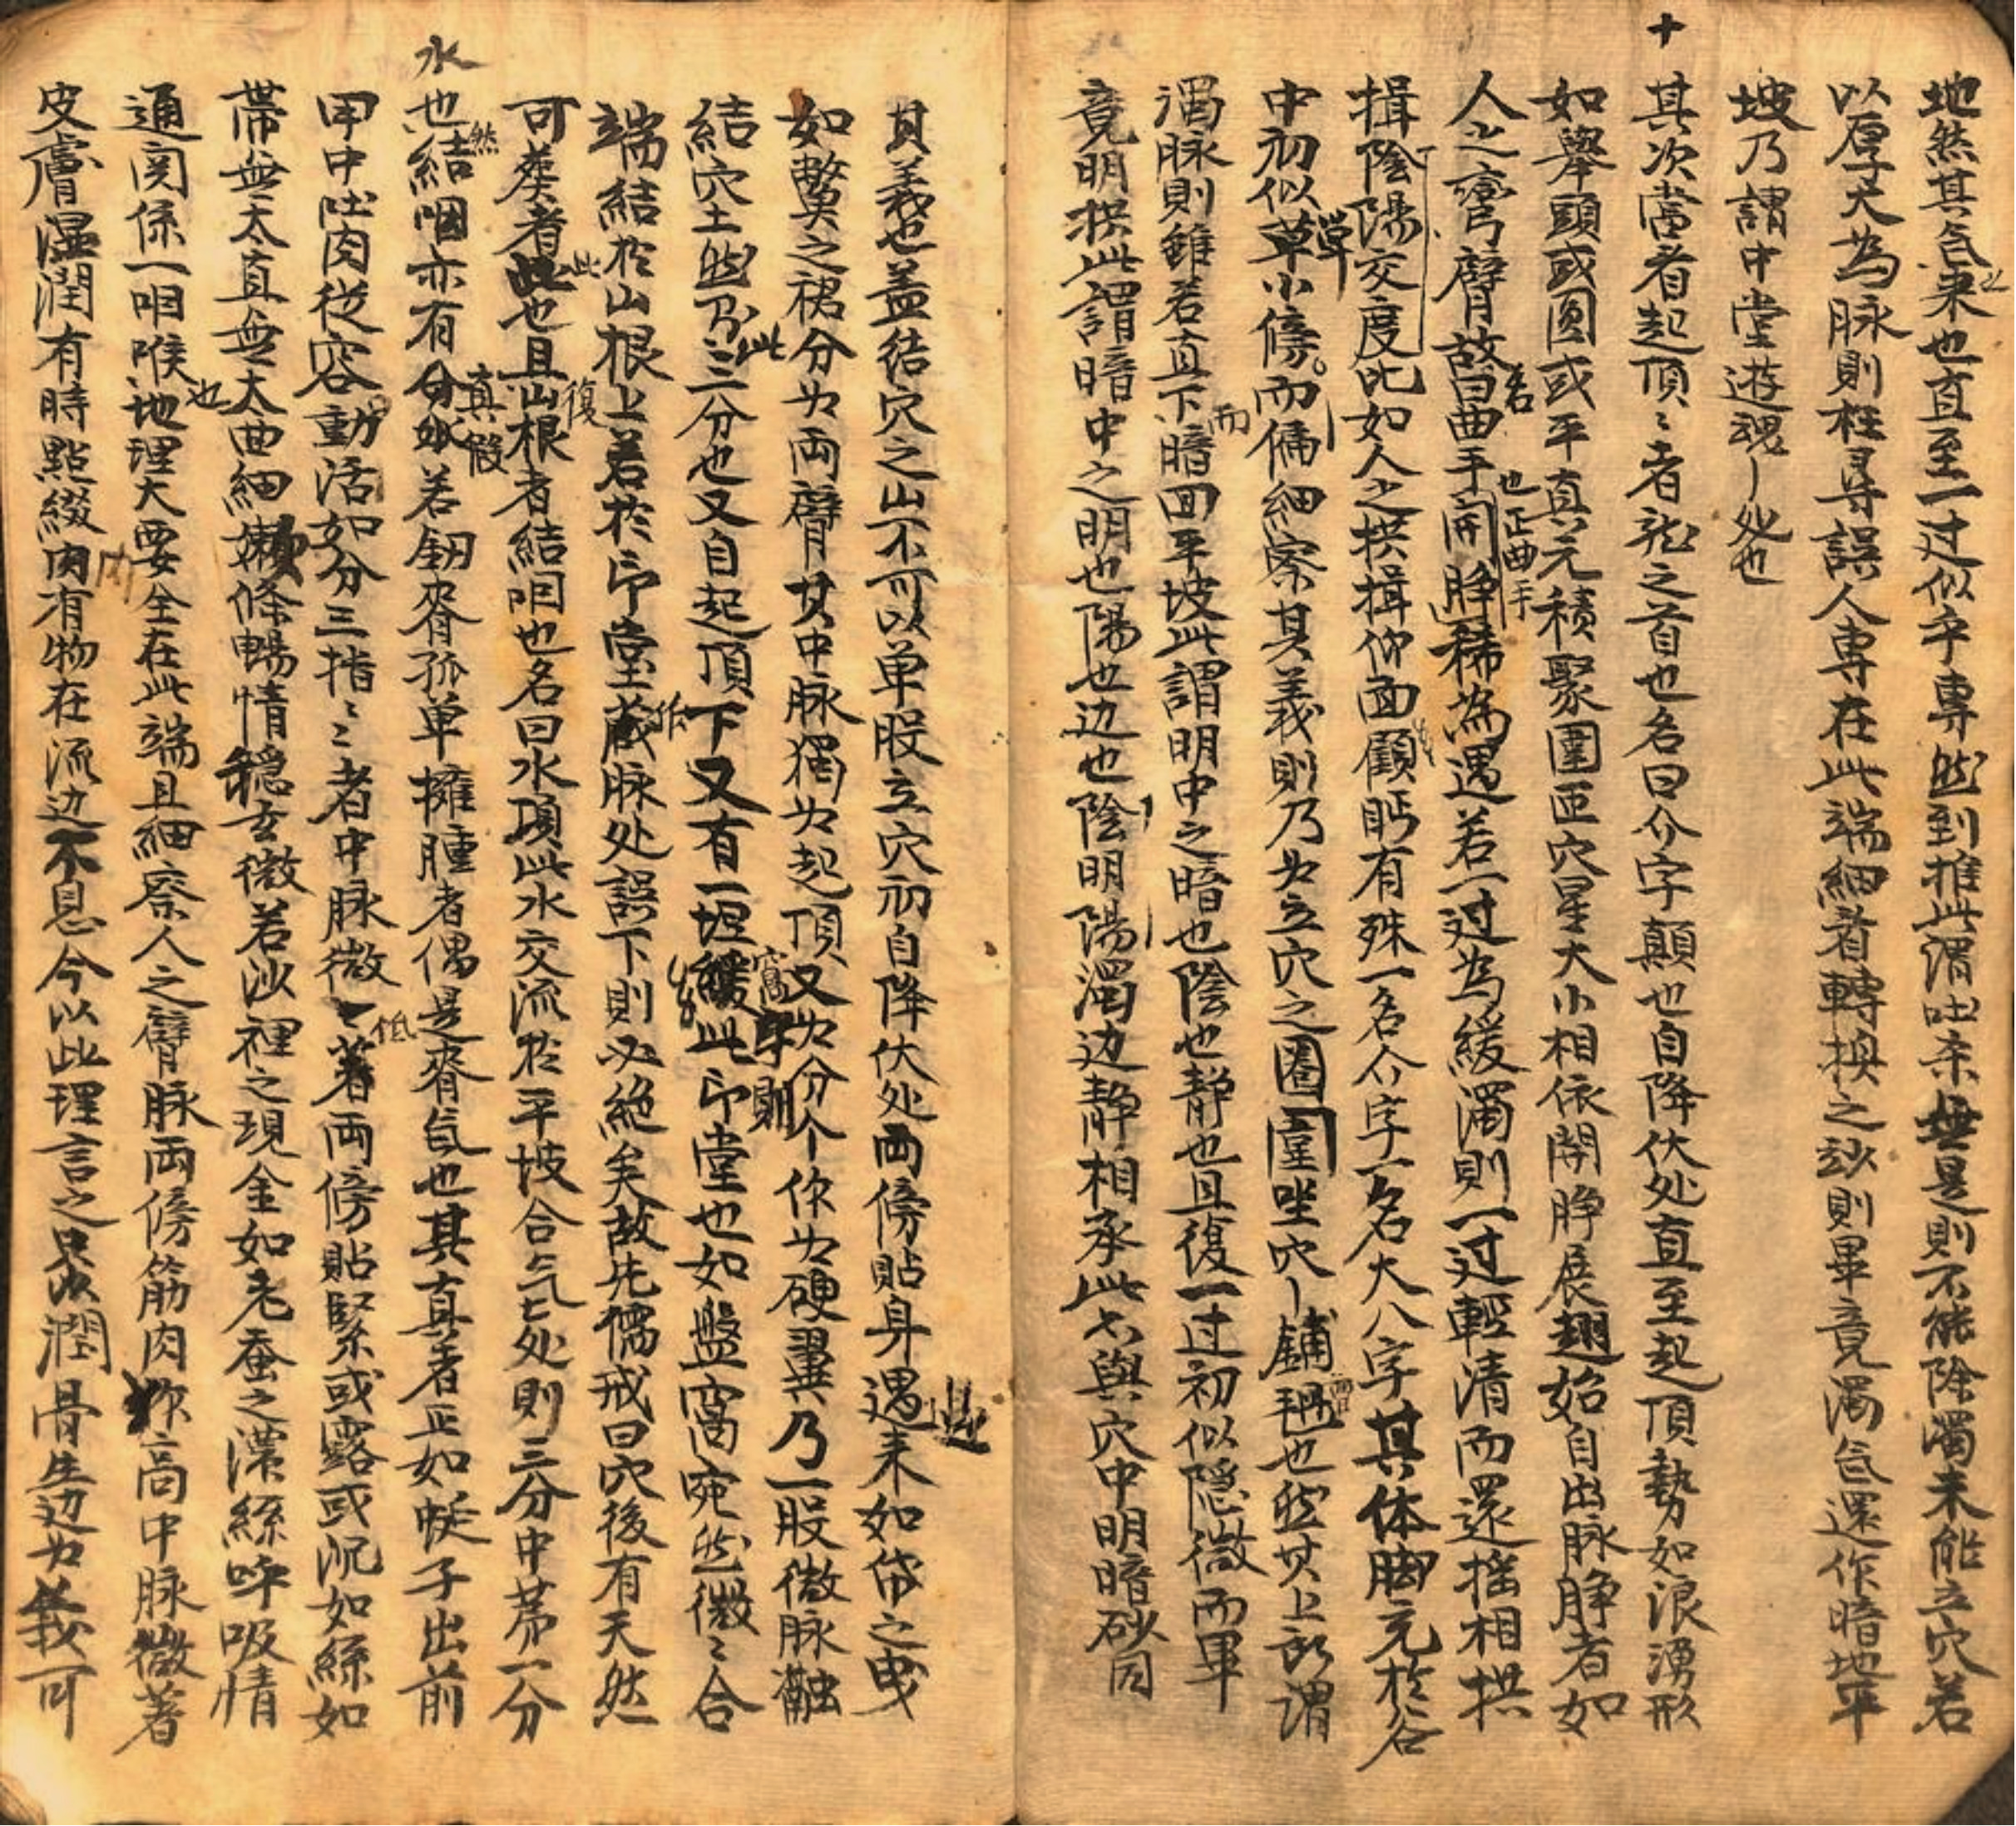 地然其気来之也直至一过似乎專然到推此謂吐杀無是則不能除濁未能立穴若
以厚大為脉則枉尋誤人專在此端細看轉換之玅則畢竟濁気還作暗地平
坡乃謂中堂遊魂丶处也
十
其次當看起頂〻者龍之首也名曰介字顛也自降伏处直至起頂勢如浪湧形
如舉頭或圓或平真元積聚圍匝穴星大小相依開睁展翅始自出脉睁者如
人之彎臂故名曰曲手也正曲手開睁稀為遇若一过為緩濁則一过輕清而還揺相拱
揖陰陽交度比如人之拱揖仰面顧眄有殊一名介字一名大八字其体脚元於谷
中初似草單小傍而偏細察其義則乃为立穴之圈圍坐穴丶鋪也然其上所謂
濁脉則雖若直下而暗回平坡此謂明中之暗也陰也静也且復一过初似隱微而畢
竟明拱此謂暗中之明也陽也边也陰明陽濁边静相承此与與穴中明暗砂同
其義也盖结穴之山不可以单股立穴初自降伏处両傍貼身遇来如帒之曳
如鰲之裙分为両臂其中脉獨为起頂又为分个你为硬翼乃一股微脉融
結穴土然乃此三分也又自起頂下又有一堤緩窩字則此印堂也如盤窩宛然微〻合
端結於山根上若於印堂低蔵脉处誤下則必絕矣故先儒戒曰穴後有天然
可葬者此也且復山根者結咽也名曰水項此水交流於平坡合气七处則三分中苐一分
水
也然結咽亦有真假若釼脊孤单擁腫者偶是脊気也其真者正如蜓子出前
甲中吐肉從容動活如分三指〻者中脉微低著両傍貼緊或露或沉如絲如
帶無太直無大曲細嫩條暢情穩玄微若沙裡之現金如老蚕之濃絲呼吸情
通関係一咽喉也地理大要全在此端且細察人之臂脉両傍筋肉你高中脉微著
皮膚湿潤有時點綴肉有物在流边不息今以此理言之只以潤骨生边为義可